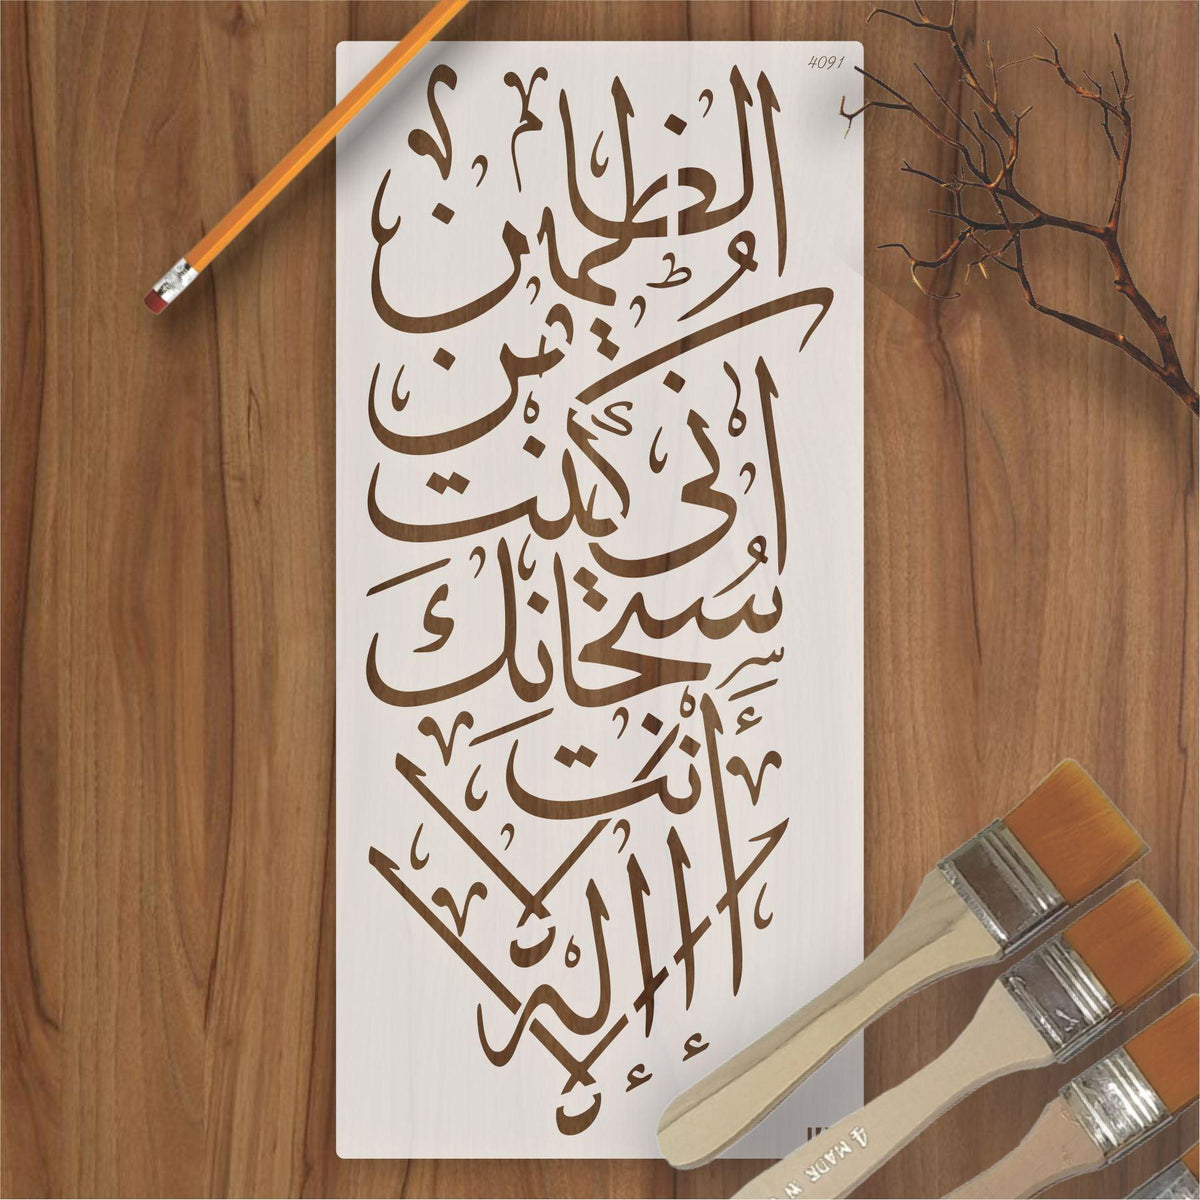 4091
لا إله إلا
أنت
سبحانك
اني كنت
من
الظلمين
4 MADE